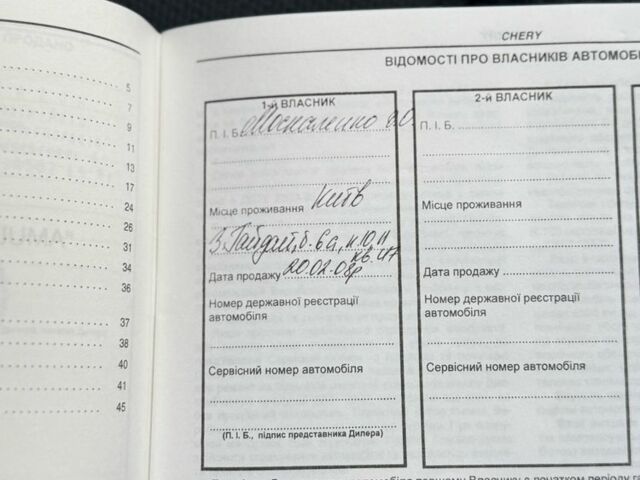 5
7
9
11
13
17
24
26
31
34
36
37
38
40
41
45
CHERY
ВІДОМОСТІ ПРО ВЛАСНИКІВ АВТОМОБІ
1-й ВЛАСНИК
П. І. Б. Москаленко
Місце проживання Київ
З. Гайдай, б. 6а,
кв. 47
Дата продажу 20.02.08р
Номер державної реєстрації
автомобіля
Сервісний номер автомобіля
(П. І. Б., підпис представника Дилера)
2-й ВЛАСНИК
П. І. Б.
Місце проживання
Дата продажу
Номер державної реєстрації
автомобіля
Сервісний номер автомобіля